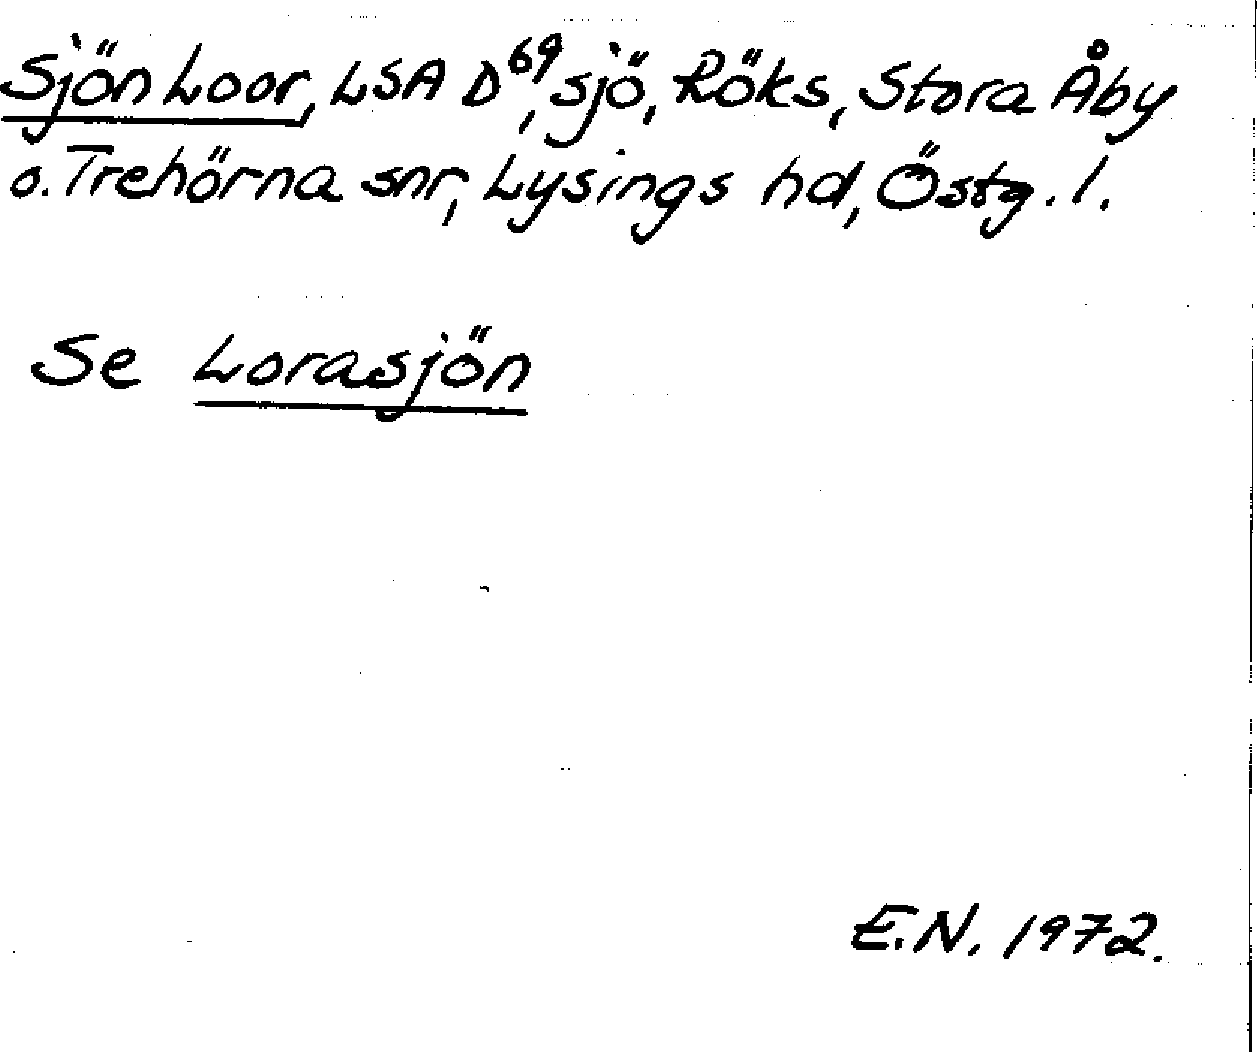 Sjön Loor, LSA D69, sjö, Röks, Stora Åby
o. Trehörna snr, Lysings hd, Östg. l.
Se Lorasjön
E.N. 1972.